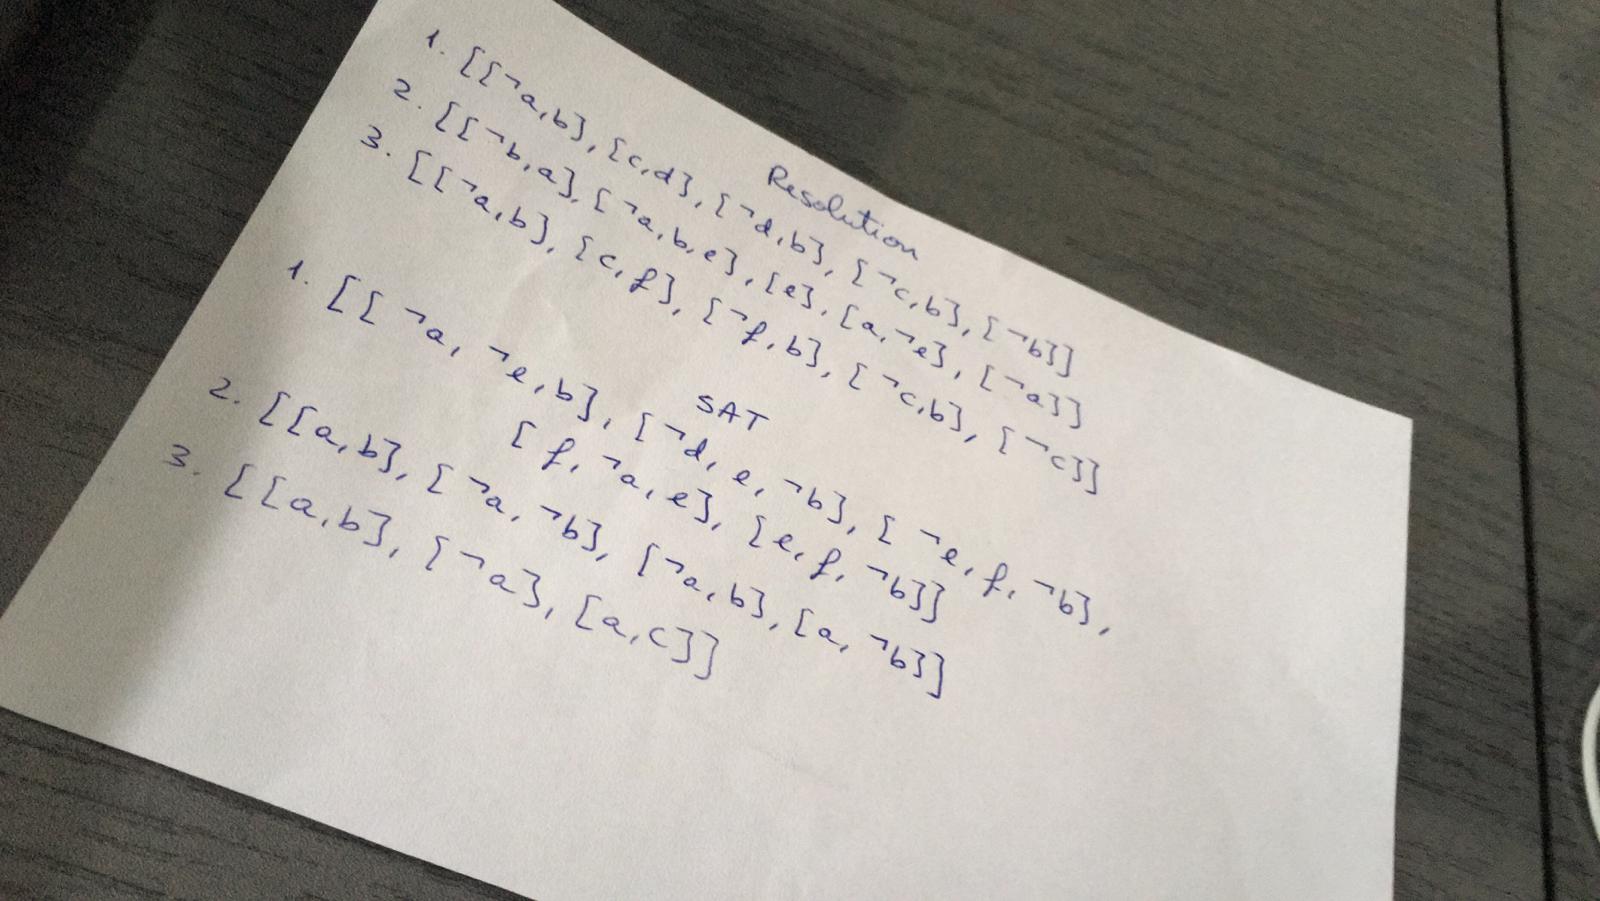 Resolution
1. [[¬a,b], [c,d], [¬d,b], [¬c,b], [¬b]]
2. [[¬b,a], [¬a,b,e], [e], [a,¬e], [¬a]]
3. [[¬a,b], [c,f], [¬f,b], [¬c,b], [¬c]]
SAT
1. [[¬a, ¬e, b], [¬d, e, ¬b], [¬e, f, ¬b],
[f, ¬a, e], [e, f, ¬b]]
2. [[a,b], [¬a, ¬b], [¬a, b], [a, ¬b]]
3. [[a,b], [¬a], [a,c]]